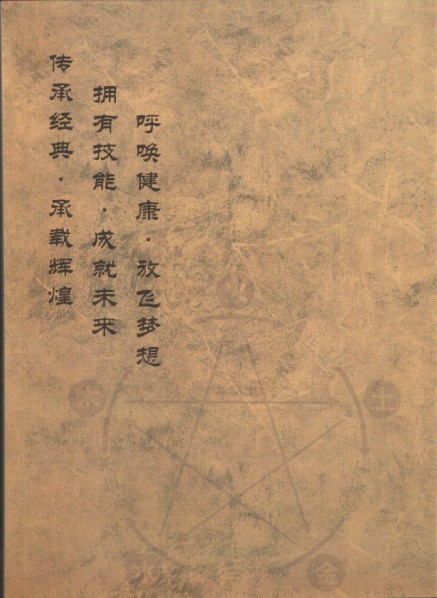 呼唤健康·放飞梦想
拥有技能·成就未来
传承经典·承载辉煌
火
木
土
金